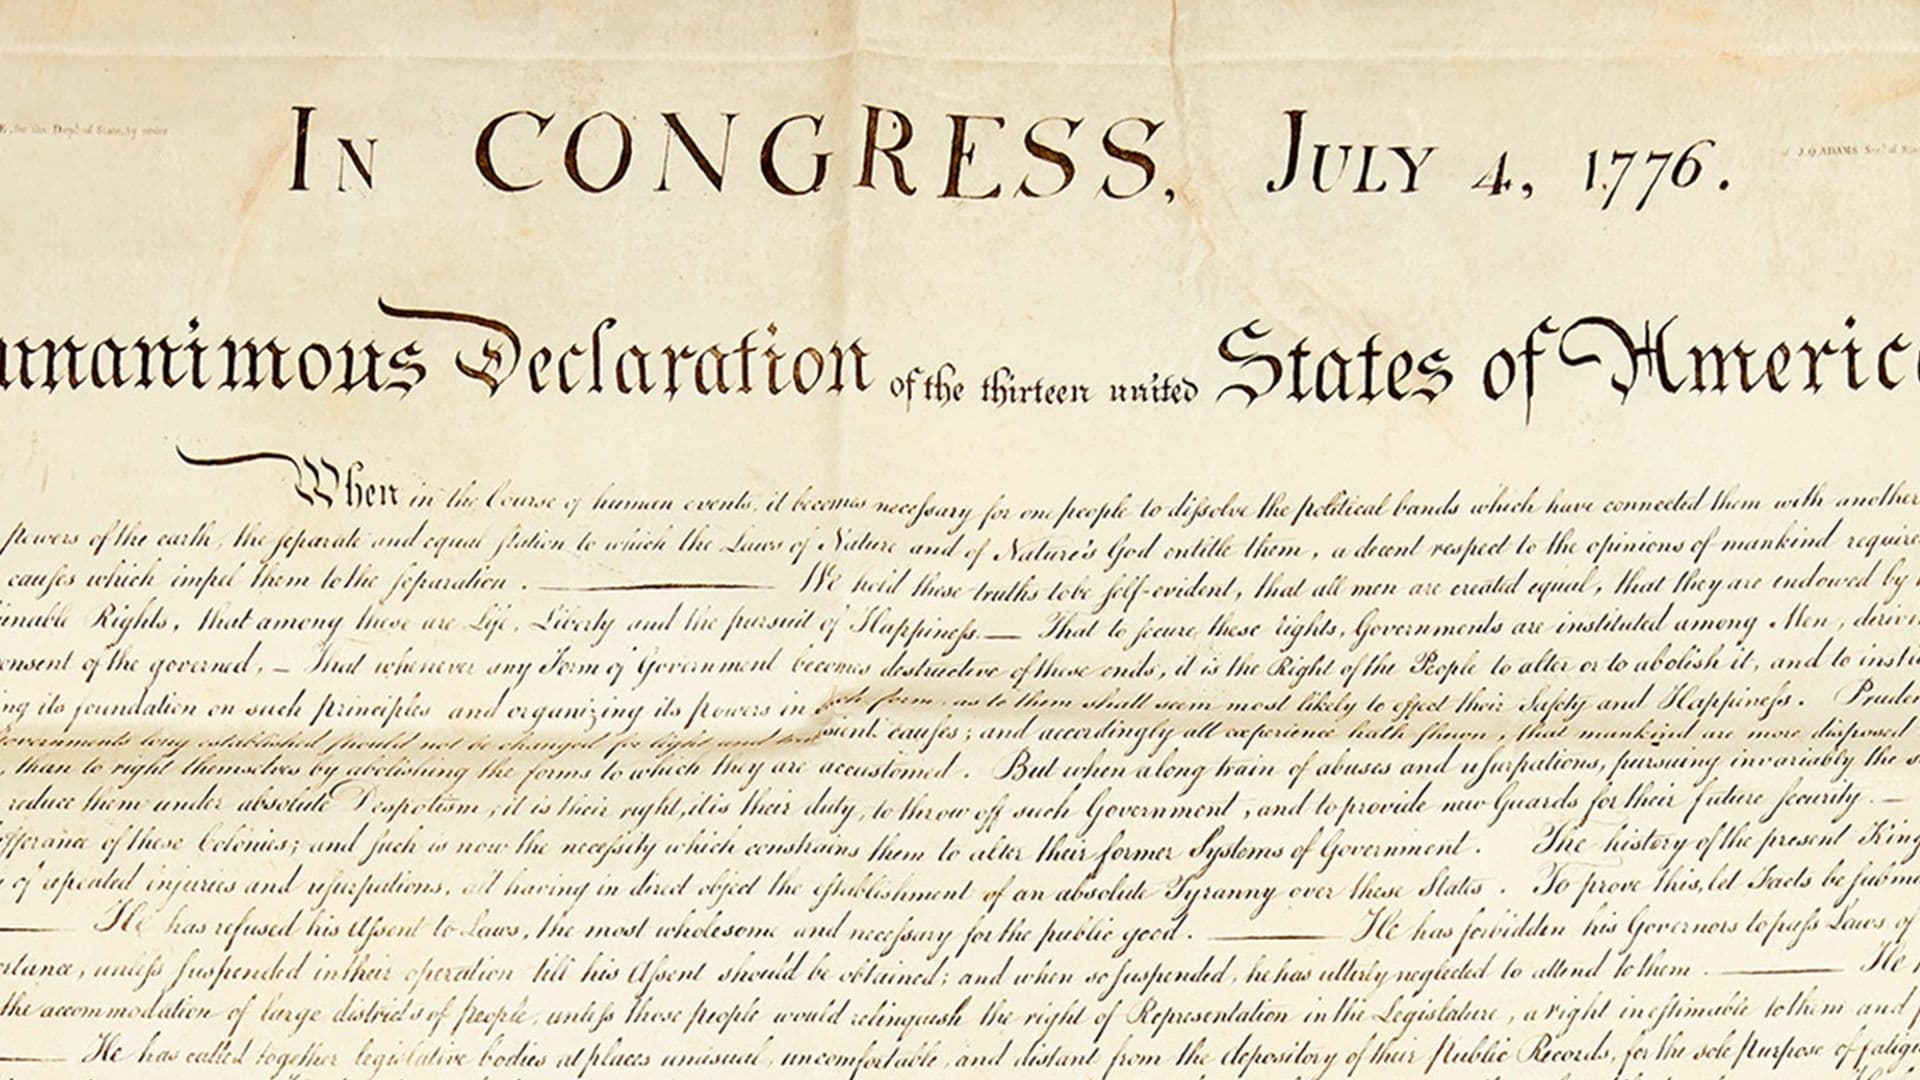 E, for the Dept. of State, by order
of J.Q. ADAMS Sec. of Stat
IN CONGRESS, JULY 4, 1776.
unanimous Declaration of the thirteen united States of America
When in the Course of human events, it becomes necessary for one people to dissolve the political bands which have connected them with another
powers of the earth, the separate and equal station to which the Laws of Nature and of Nature's God entitle them, a decent respect to the opinions of mankind require
causes which impel them to the separation. ——— We hold these truths to be self-evident, that all men are created equal, that they are endowed by
inable Rights, that among these are Life, Liberty and the pursuit of Happiness. — That to secure these rights, Governments are instituted among Men, derivin
onsent of the governed, — That whenever any Form of Government becomes destructive of these ends, it is the Right of the People to alter or to abolish it, and to institu
ng its foundation on such principles and organizing its powers in such form, as to them shall seem most likely to effect their Safety and Happiness. Pruden
Governments long established should not be changed for light and transient causes; and accordingly all experience hath shewn, that mankind are more disposed
, than to right themselves by abolishing the forms to which they are accustomed. But when a long train of abuses and usurpations, pursuing invariably the s
reduce them under absolute Despotism, it is their right, it is their duty, to throw off such Government, and to provide new Guards for their future security. —
fferance of these Colonies; and such is now the necessity which constrains them to alter their former Systems of Government. The history of the present King
of repeated injuries and usurpations, all having in direct object the establishment of an absolute Tyranny over these States. To prove this, let Facts be subm
——— He has refused his Assent to Laws, the most wholesome and necessary for the public good. ——— He has forbidden his Governors to pass Laws of
ortance, unless suspended in their operation till his Assent should be obtained; and when so suspended, he has utterly neglected to attend to them. ——— He
the accommodation of large districts of people, unless those people would relinquish the right of Representation in the Legislature, a right inestimable to them and f
——— He has called together legislative bodies at places unusual, uncomfortable, and distant from the depository of their Public Records, for the sole purpose of fatigu